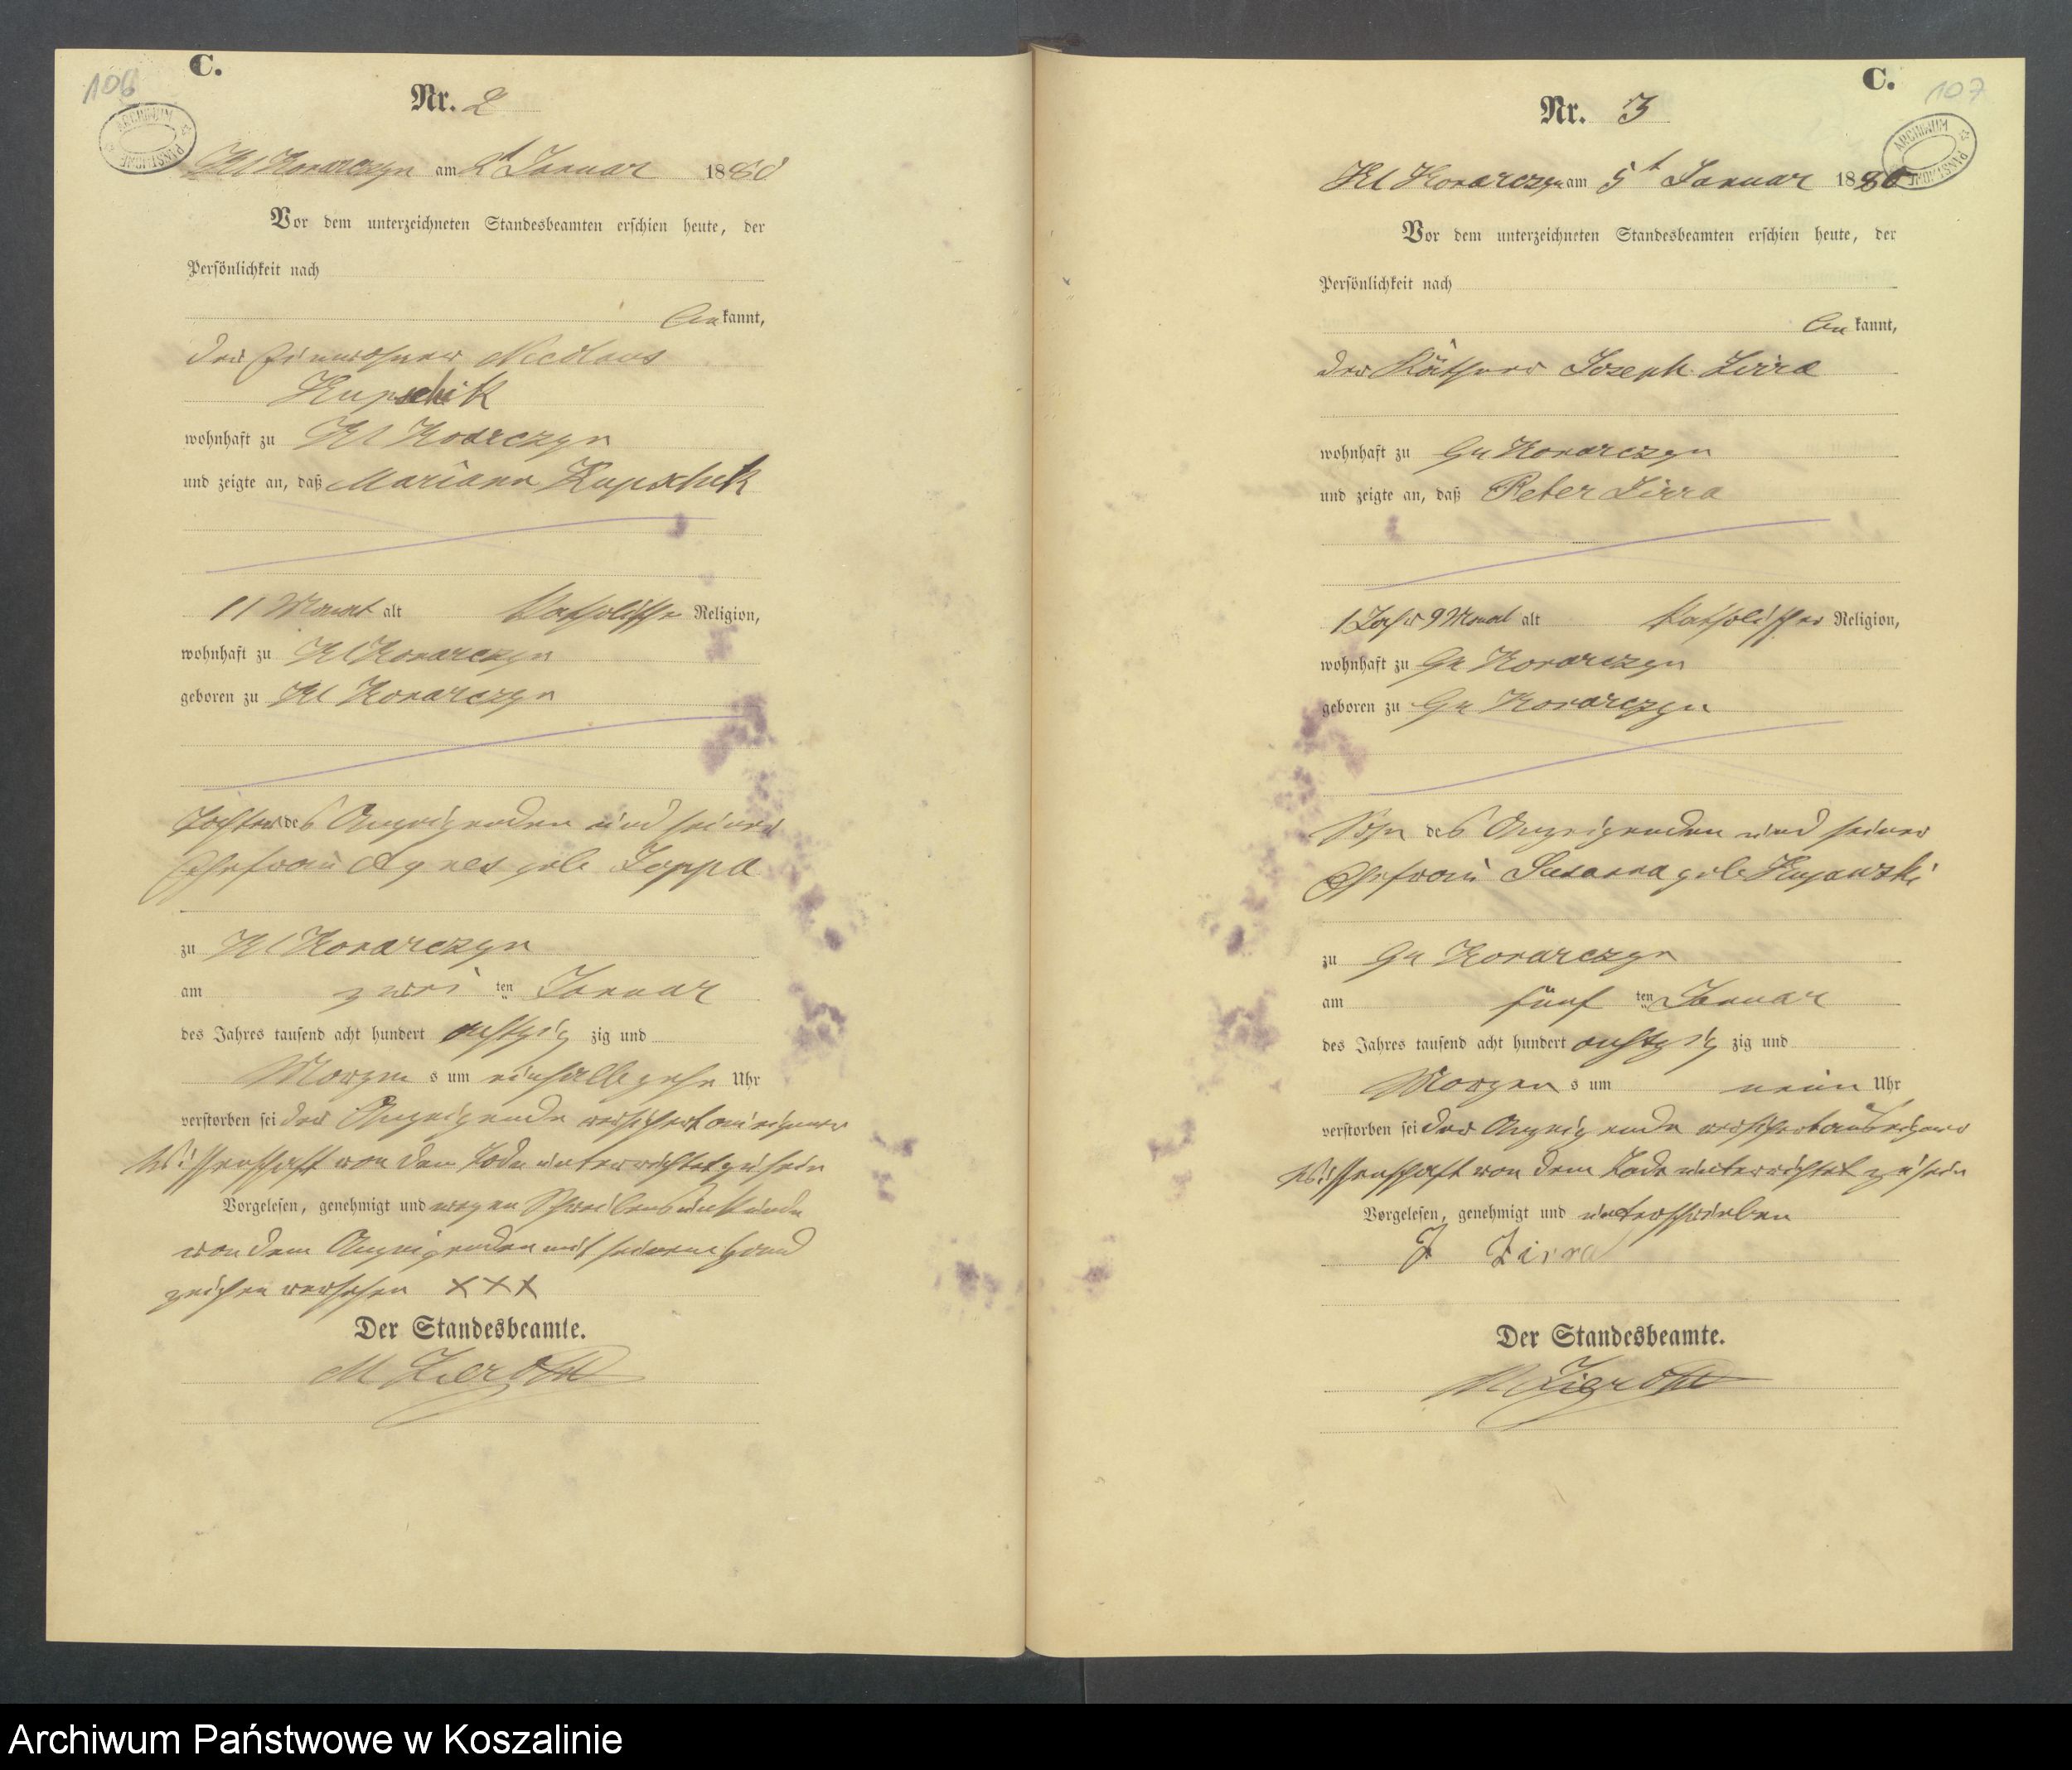 106
C.
Nr. 2
ARCHIWUM PAŃSTWOWE
Kl Konarczyn am 2t Januar 1880
Vor dem unterzeichneten Standesbeamten erschien heute, der
Persönlichkeit nach
be kannt,
der Einwohner Nicolaus
Kupschik
wohnhaft zu Kl Konarczyn
und zeigte an, daß Mariann Kupschik
11 Monat alt Katholische Religion,
wohnhaft zu Kl Konarczyn
geboren zu Kl Konarczyn
Tochter des Anzeigenden und seiner
Ehefrau Agnes geb Zoppa
zu Kl Konarczyn
am zwei ten Januar
des Jahres tausend acht hundert achtzig zig und
Morgen s um einhalb zehn Uhr
verstorben sei der Anzeigende versichert aus eigener
Wissenschaft von dem Tode unterrichtet zu sein
Vorgelesen, genehmigt und wegen Schreibensunkunde
von dem Anzeigenden mit seinem Hand
zeichen versehen XXX
Der Standesbeamte.
C.
107
Nr. 3
ARCHIWUM PAŃSTWOWE
Kl Konarczyn am 5t Januar 1880
Vor dem unterzeichneten Standesbeamten erschien heute, der
Persönlichkeit nach
be kannt,
der Käthner Joseph Zirra
wohnhaft zu Gr Konarczyn
und zeigte an, daß Peter Zirra
1 Jahr 9 Monat alt Katholischer Religion,
wohnhaft zu Gr Konarczyn
geboren zu Gr Konarczyn
Sohn des Anzeigenden und seiner
Ehefrau Susanna geb Kujawski
zu Gr Konarczyn
am fünf ten Januar
des Jahres tausend acht hundert achtzig zig und
Morgen s um neun Uhr
verstorben sei der Anzeigende versichert aus eigener
Wissenschaft von dem Tode unterrichtet zu sein
Vorgelesen, genehmigt und unterschrieben
J Zirra
Der Standesbeamte.
Archiwum Państwowe w Koszalinie